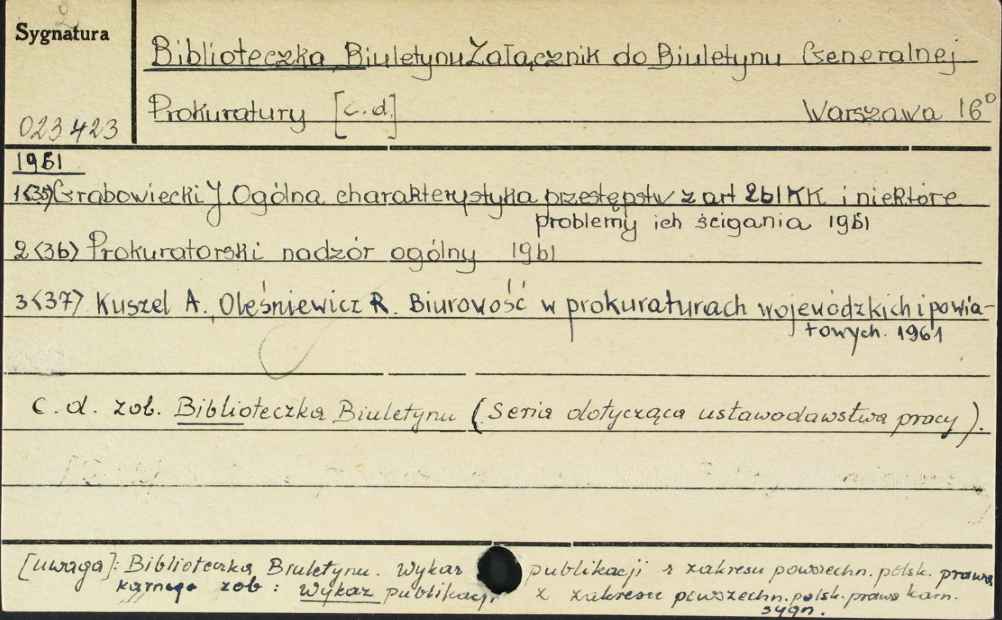 Sygnatura
Biblioteczka Biuletynu Załącznik do Biuletynu Generalnej
Prokuratury [c.d.] Warszawa 16°
023423
1961
1(35) Grabowiecki J. Ogólna charakterystyka przestępstw z art 261 KK i niektóre
problemy ich ścigania 1961
2(36) Prokuratorski nadzór ogólny 1961
3(37) Kuszel A., Oleśniewicz R. Biurowość w prokuraturach wojewódzkich i powia-
towych. 1961
c.d. zob. Biblioteczka Biuletynu (Seria dotycząca ustawodawstwa pracy).
[uwaga]: Biblioteczka Biuletynu. Wykaz publikacji z zakresu powszechn. polsk. prawa
karnego zob: Wykaz publikacji z zakresu powszechn. polsk. prawa karn.
sygn.